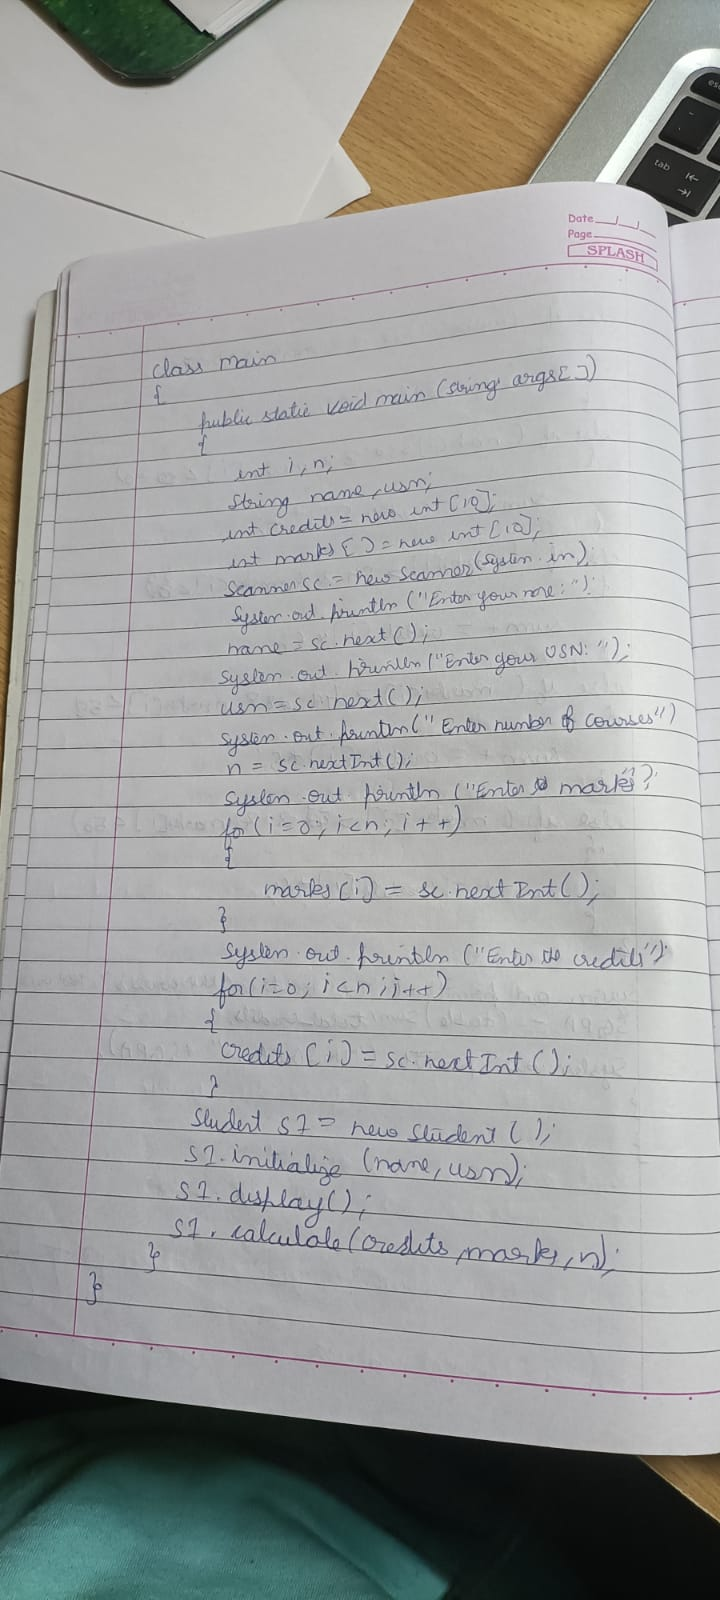 Date
Page
SPLASH
class main
{
public static void main (string args[])
{
int i, n;
String name, usn;
int credits = new int [10];
int marks [] = new int [10];
Scanner sc = new Scanner (System.in);
System.out.println ("Enter your name: ");
name = sc.next();
System.out.println ("Enter your USN: ");
usn = sc.next();
System.out.println (" Enter number of courses")
n = sc.nextInt();
System.out.println ("Enter marks"
for (i=0; i<n; i++)
{
marks [i] = sc.nextInt();
}
System.out.println ("Enter the credits");
for(i=0; i<n; i++)
{
credits [i] = sc.nextInt();
}
Student s1 = new Student ();
s1.initialize (name, usn);
s1.display();
s1.calculate (credits, marks, n);
}
}
esc
tab